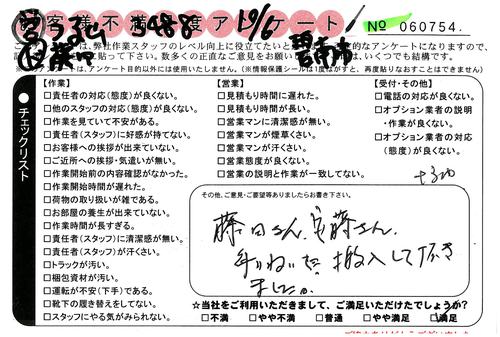 お客様不満足度アンケート
№ 060754.
このアンケートは、弊社作業スタッフのレベル向上に役立てたいと
的なアンケートになりますので、
貼って下さい。数多くの正直なご意見をお願い
はいくつでも結構です。
アンケート目的以外には使用いたしません。(※情報保護シールは1度ながすと、再度貼りなおすことはできません)
チェックリスト
【作業】
□責任者の対応(態度)が良くない。
□他のスタッフの対応(態度)が良くない。
□作業を見ていて不安がある。
□責任者(スタッフ)に好感が持てない。
□お客様への挨拶が出来ていない。
□ご近所への挨拶・気遣いが無い。
□作業開始前の内容確認がなかった。
□作業開始時間が遅れた。
□荷物の取り扱いが雑である。
□お部屋の養生が出来ていない。
□作業時間が長すぎる。
□責任者(スタッフ)に清潔感が無い。
□責任者(スタッフ)が汗くさい。
□トラックが汚い。
□梱包資材が汚い。
□運転が不安(下手)である。
□靴下の履き替えをしてない。
□スタッフにやる気がみられない。
【営業】
□見積もり時間に遅れた。
□見積もり時間が長い。
□営業マンに清潔感が無い。
□営業マンが煙草くさい。
□営業マンが汗くさい。
□営業態度が良くない。
□営業の説明と作業が一致してない。
【受付・その他】
□電話の対応が良くない。
□オプション業者の説明
・作業が良くない。
□オプション業者の対応
(態度)が良くない。
その他、ご意見・ご要望等ありましたらお書き下さい。
藤田さん、安藤さん、
手ねいに搬入して頂き
ました。
☆当社をご利用いただきまして、ご満足いただけたでしょうか?
□不満 □やや不満 □普通 □やや満足 □満足